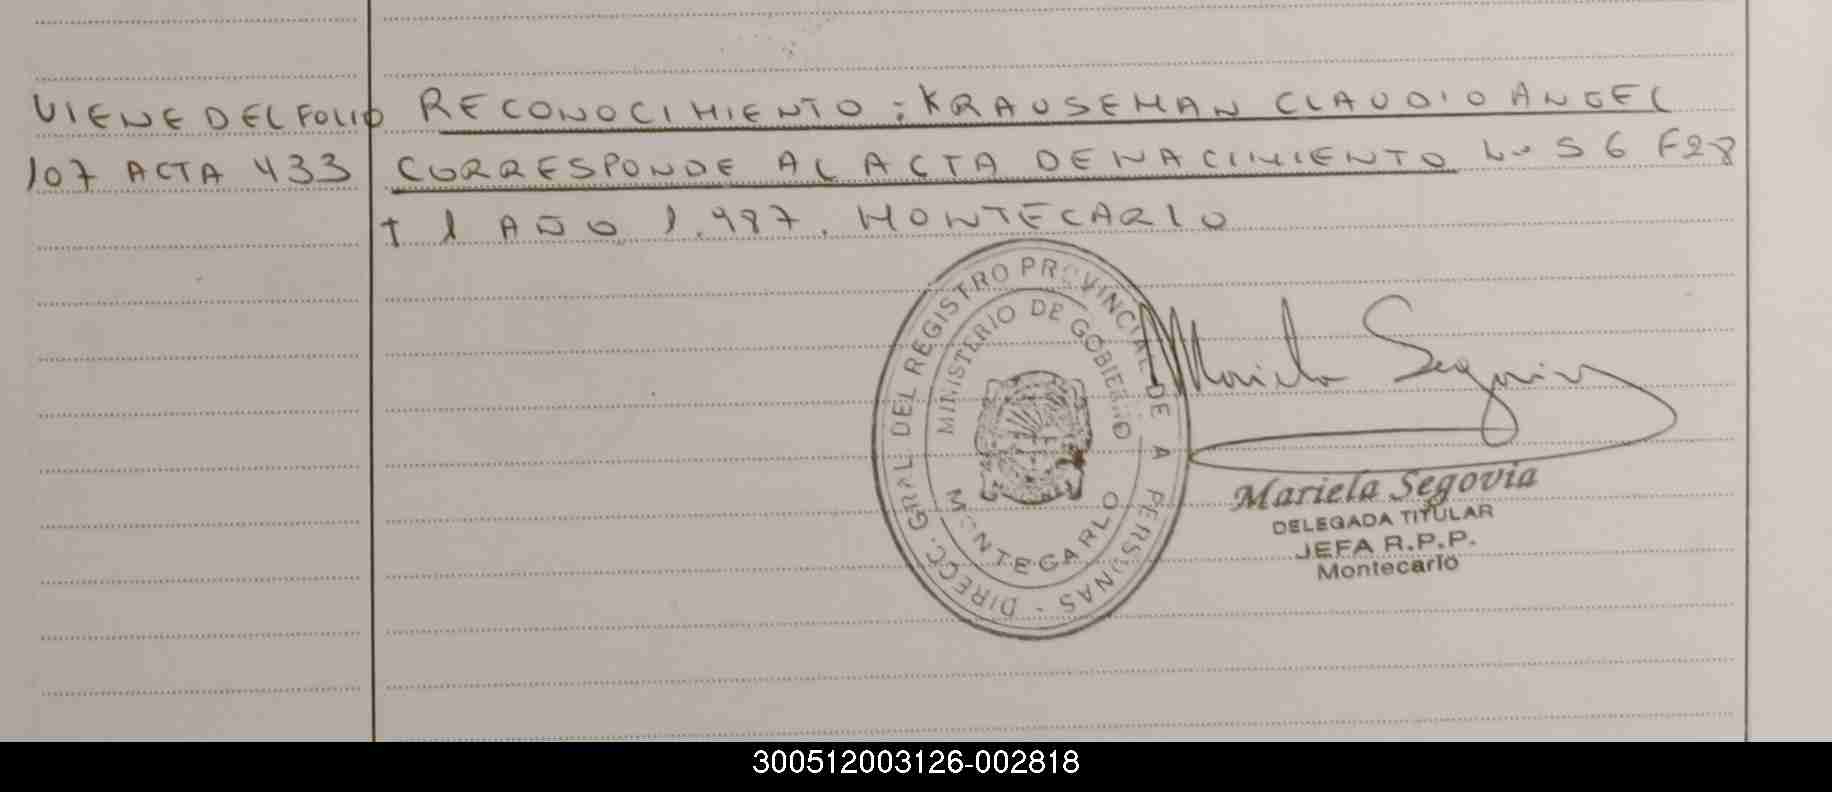 VIENE DEL FOLIO
107 ACTA 433
RECONOCIMIENTO : KRAUSEMAN CLAUDIO ANGEL
CORRESPONDE AL ACTA DE NACIMIENTO Nº 56 F28
T 1 AÑO 1.987. MONTECARLO
DIRECC. GRAL DEL REGISTRO PROVINCIAL DE LA PERSONAS -
MINISTERIO DE GOBIERNO
MONTECARLO
Mariela Segovia
Mariela Segovia
DELEGADA TITULAR
JEFA R.P.P.
Montecarlo
300512003126-002818